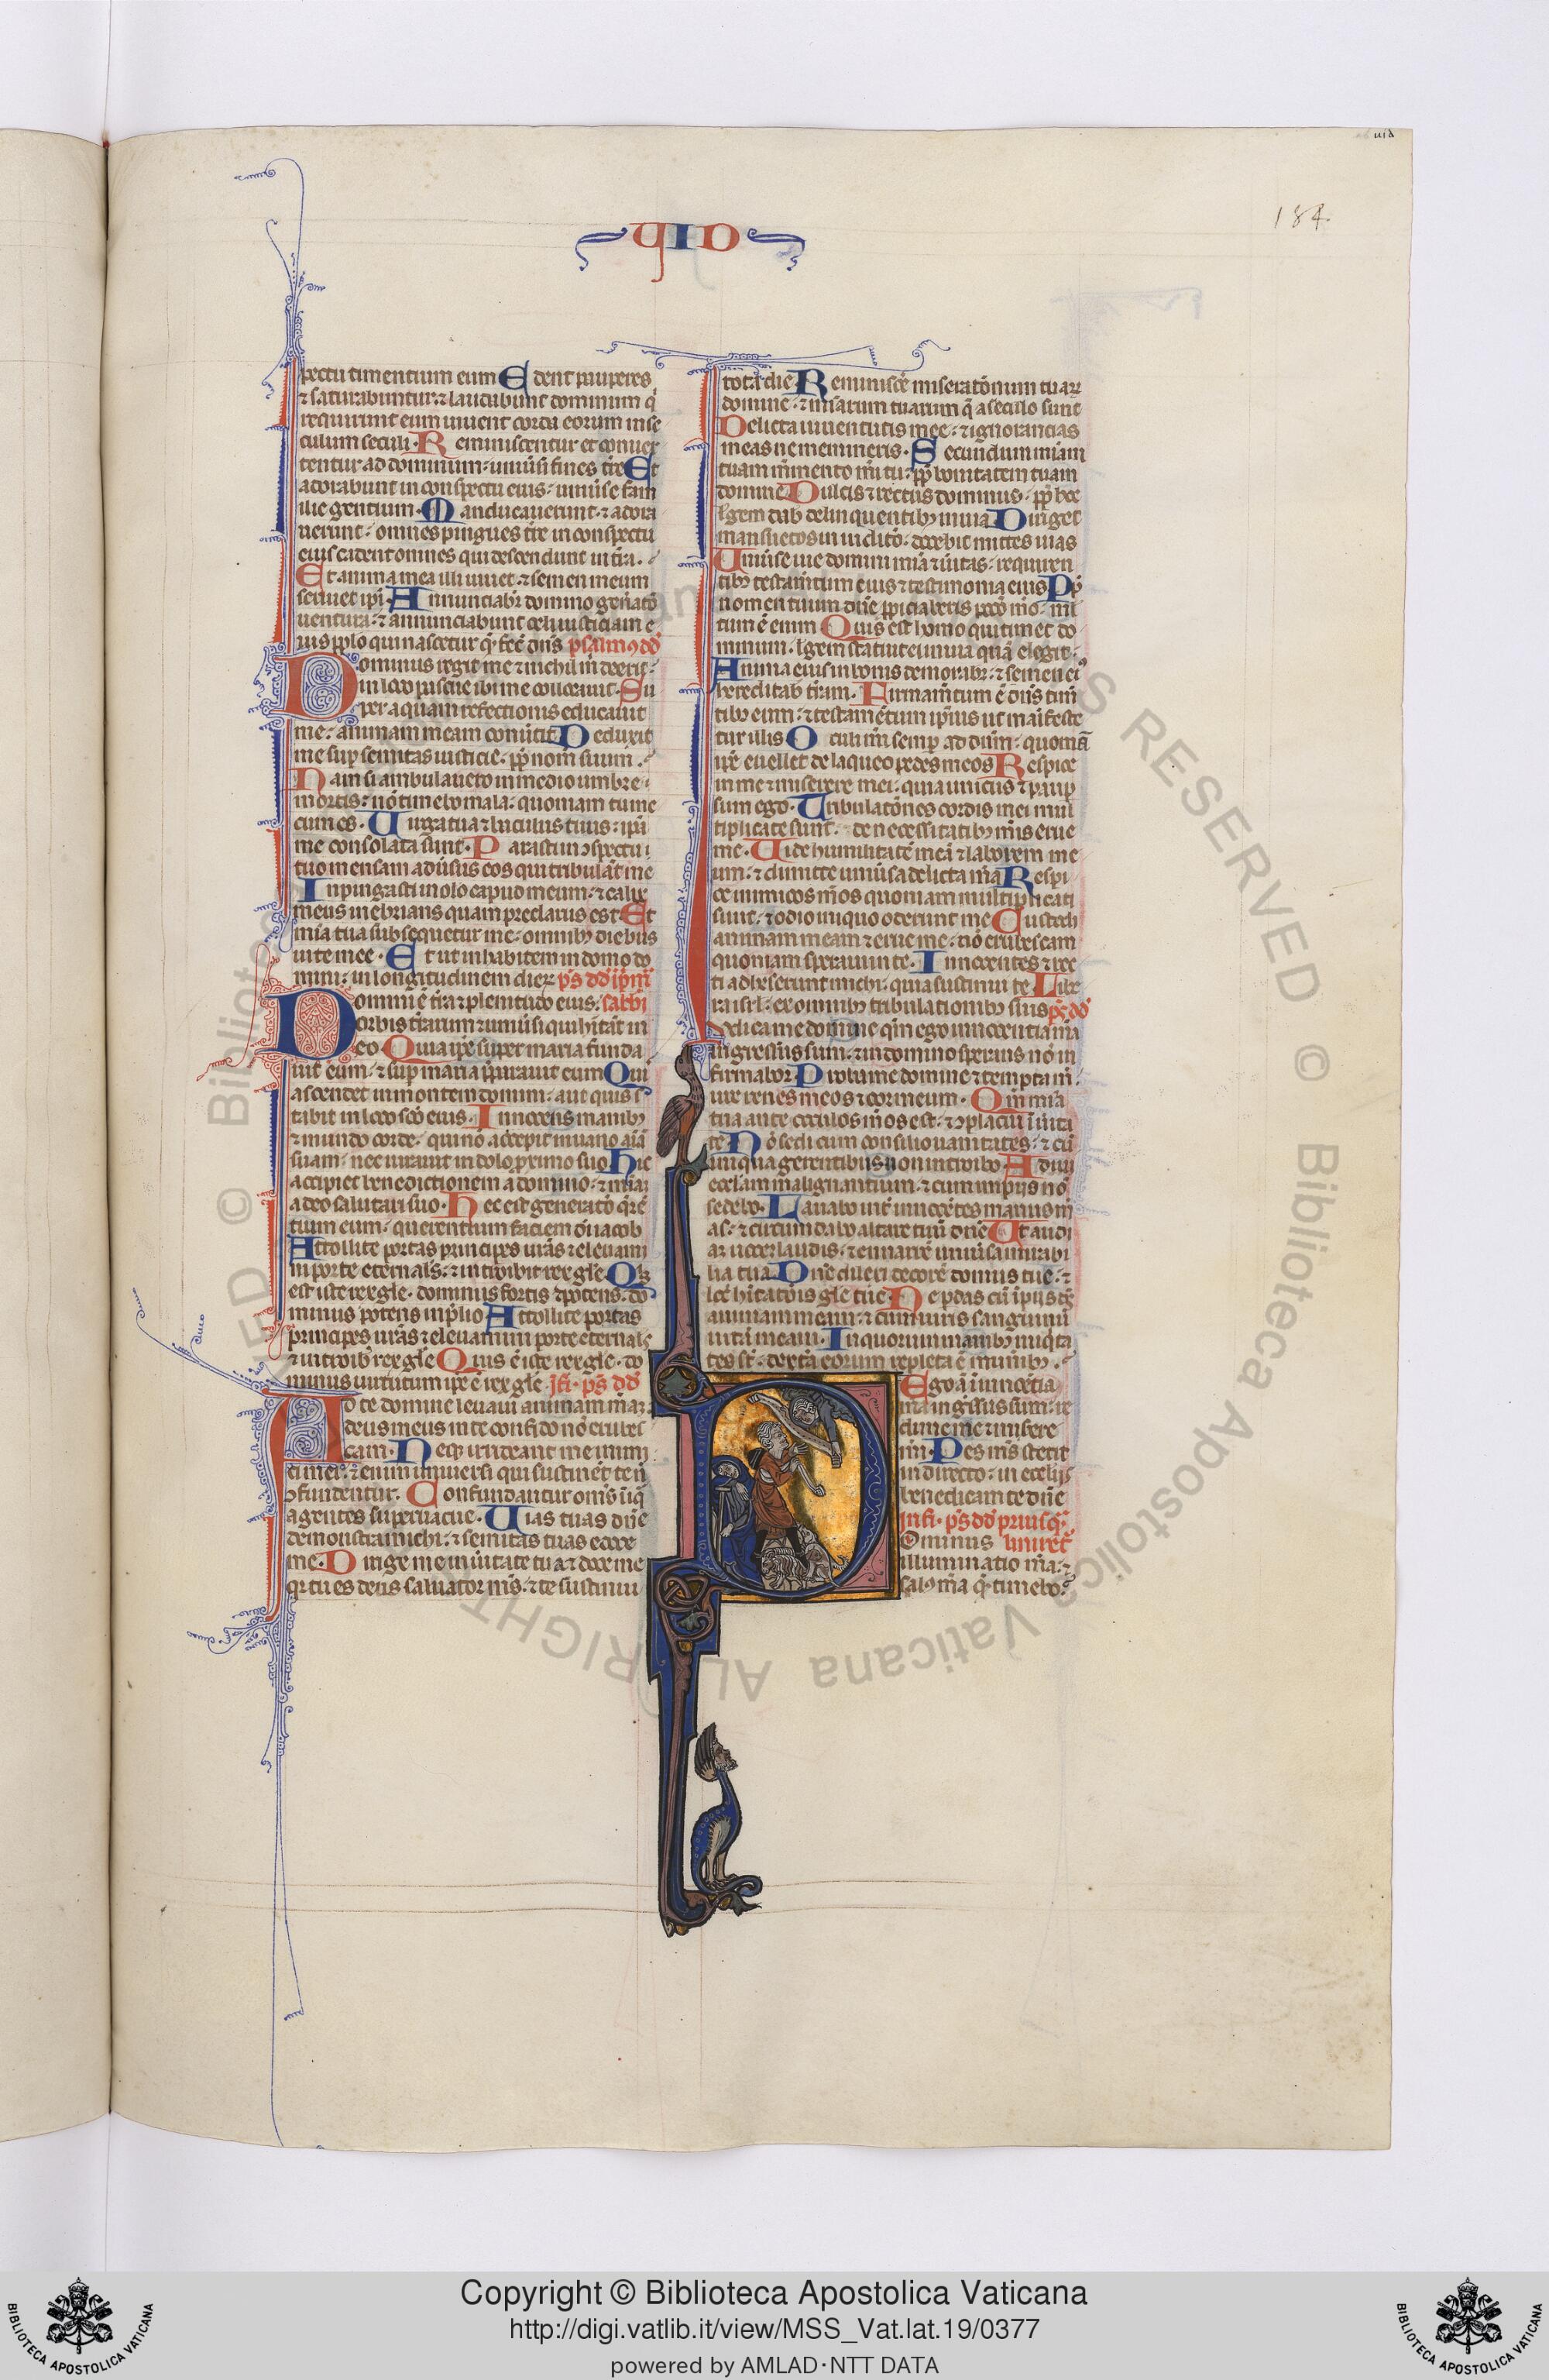 VID
184
pectu timentium eum Edent pauperes
⁊ saturabuntur ⁊ laudabunt dominum q
requirunt eum uiuent corda eorum in se
culum seculi. Reminiscentur et conuer
tentur ad dominum uniusi fines tre Et
adorabunt in conspectu eius uniuse fam
ilie gentium. Manducauerunt ⁊ adora
uerunt omnes pingues tre in conspectu
eius cadent omnes qui descendunt in tra.
Et anima mea illi uiuet ⁊ semen meum
seruiet ipi. Annunciabr domino genato
uentura ⁊ annunciabunt celi iusticiam e
ius pplo qui nascetur q fec dns psalmus dd
Dominus regit me ⁊ nichil m deerit
in loco pascue ibi me collocauit. Su
per aquam refectionis educauit
me animam meam conutit Deduxit
me sup semitas iusticie ppt nom suum.
Nam si ambulauero in medio umbre
mortis no timebo mala quoniam tu me
cum es. Uirga tua ⁊ baculus tuus ipa
me consolata sunt. Parasti in ɔspectu
tuo mensam adusus eos qui tribulant me
Inpingasti in oleo caput meum ⁊ calix
meus inebrians quam preclarus est Et
mia tua subsequetur me omnibus diebus
uite mee. Et ut inhabitem in domo do
mini in longitudinem dier ps dd ipm
Domini e tra ⁊ plenitudo eius sabbi
orbis trarum ⁊ uniusi qui hitant in
eo Quia ipe super maria funda
uit eum ⁊ sup maria ppauit eum Quis
ascendet in montem domini aut quis s
tabit in loco sco eius. Innocens manibus
⁊ mundo corde qui no accepit in uano aiam
suam nec iurauit in dolo proximo suo Hic
accipiet benedictionem a domino ⁊ miam
a deo salutari suo. Hec est generato quere
tium eum querentium faciem di iacob
Attollite portas principes uras ⁊ eleuami
ni porte eternals ⁊ introibit rex gle Quis
est iste rex gle dominus fortis ⁊ potens do
minus potens in plio Attollite portas
principes uras ⁊ eleuamini porte eternals
⁊ introibit rex gle Quis e iste rex gle do
minus uirtutum ipe e rex gle. Ifi. ps dd
Ad te domine leuaui animam mam
deus meus in te confido no erubes
cam. Neq irrideant me inimi
ci mei ⁊ enim uniuersi qui sustinent te n
ɔfundentur. Confundantur oms iniq
agentes superuacue. Uias tuas dne
demonstra michi ⁊ semitas tuas edoce
me. Dirige me in uitate tua ⁊ doce me
qr tu es deus saluator ms ⁊ te sustinui
tota die Reminisce miseratonum tuar
domine ⁊ miarum tuarum q a seculo sunt
Delicta iuuentutis mee ⁊ ignorancias
meas ne memineris. Secundum miam
tuam memento mei tu ppt bonitatem tuam
domine Dulcis ⁊ rectus dominus ppt hoc
legem dab delinquentibus in uia Diriget
mansuetos in iudito docebit mittes uias
Uniuse uie domini mia ⁊ uitas requiren
tibus testamtum eius ⁊ testimonia eius Ppt
nomen tuum dne ppiciaberis pcco mo ml
tum e enim Quis est homo qui timet do
minum legem statuit ei in uia qua elegit.
Anima eius in bonis demorabr ⁊ semen ei
hereditab tram. Firmamtum e dns timen
tibus eum ⁊ testamentum ipius ut maifeste
tur illis Oculi mi semp ad dum quoniam
ipe euellet de laqueo pedes meos Respice
in me ⁊ miserere mei quia unicus ⁊ paup
sum ego. Tribulatones cordis mei mul
tiplicate sunt de necessitatibus mis erue
me. Uide humilitate mea ⁊ laborem me
um ⁊ dimitte uniusa delicta ma Respi
ce inimicos mos quoniam multiplicati
sunt ⁊ odio iniquo oderunt me Custodi
animam meam ⁊ erue me no erubescam
quoniam speraui in te. Innocentes ⁊ rec
ti adheserunt michi quia sustinui te Libe
ra isrl ex omnibus tribulationibus suis ps dd
Iudica me domine qm ego in innocentia ma
ingressus sum ⁊ in domino sperans no in
firmabor Proba me domine ⁊ tempta m
ure renes meos ⁊ cor meum. Qm mia
tua ante occulos mos est ⁊ ɔplacui i uita
te No sedi cum consilio uanitates ⁊ cu
iniqua gerentibus non introibo Adiui
ecclam malignantium ⁊ cum impiis no
sedebo. Lauabo int innocetes manus m
as ⁊ circumdabo altare tuu dne Ut audi
am uocem laudis ⁊ enarre uniusa mirabi
lia tua Dne dilexi decore domus tue ⁊
loc hitatois gle tue. Ne pdas cu ipiis ds
animam meam ⁊ cum uiris sanguinu
uita meam. In quorum manibus iniqita
tes st dextra eorum repleta e munibus.
Ego a i innocetia
ma ingssus sum re
dime me ⁊ misere
mi. Pes ms stetit
in directo in ecclijs
benedicam te dne
Infi. ps dd prius q
Dominus liniret
illuminatio ma ⁊
salus ma q timebo
Copyright © Biblioteca Apostolica Vaticana
http://digi.vatlib.it/view/MSS_Vat.lat.19/0377
powered by AMLAD·NTT DATA
BIBLIOTECA APOSTOLICA VATICANA
BIBLIOTECA APOSTOLICA VATICANA